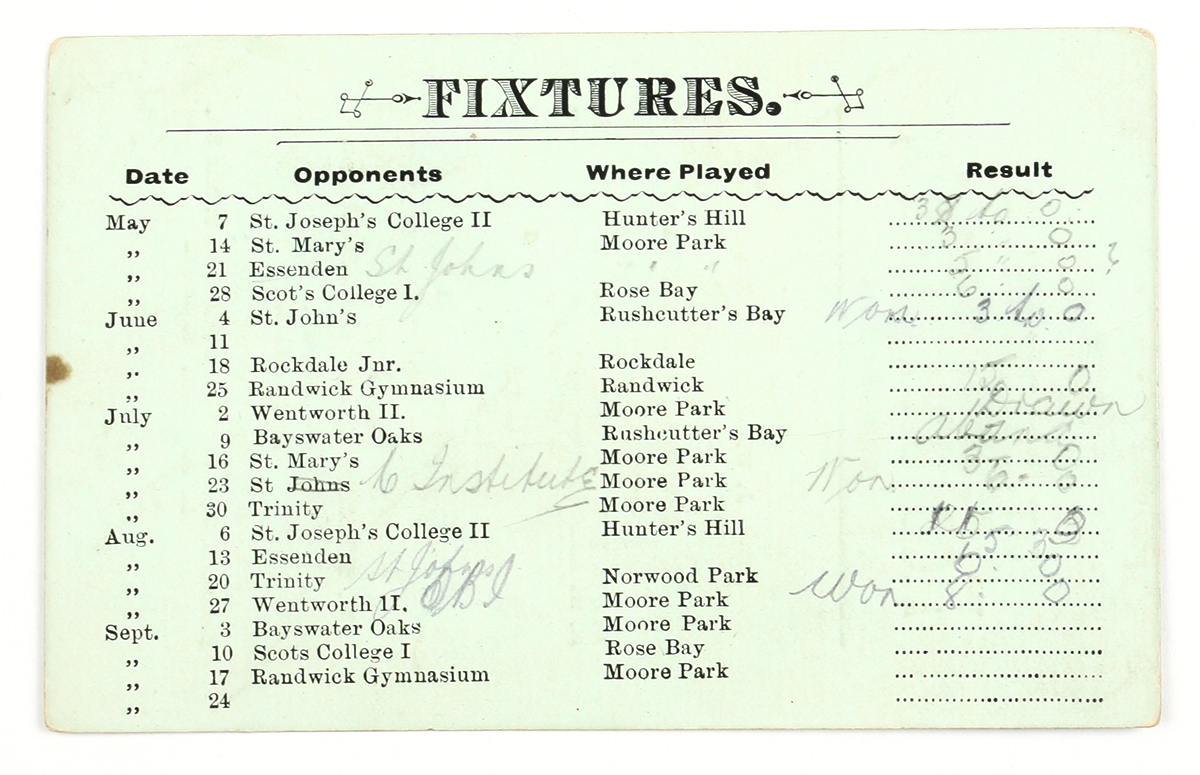 FIXTURES.
Date Opponents Where Played Result
May 7 St. Joseph's College II Hunter's Hill 38 to 0
„ 14 St. Mary's Moore Park 3 " 0
„ 21 Essenden St Johns " " 5 " 0 ?
„ 28 Scot's College I. Rose Bay 6 " 0
June 4 St. John's Rushcutter's Bay Won 3 to 0
„ 11
„ 18 Rockdale Jnr. Rockdale
„ 25 Randwick Gymnasium Randwick 0
July 2 Wentworth II. Moore Park Drawn
„ 9 Bayswater Oaks Rushcutter's Bay
„ 16 St. Mary's Moore Park 0
„ 23 St Johns C Institute Moore Park Won
„ 30 Trinity Moore Park
Aug. 6 St. Joseph's College II Hunter's Hill
„ 13 Essenden St Johns
„ 20 Trinity Norwood Park
„ 27 Wentworth II. Moore Park Won 8 0
Sept. 3 Bayswater Oaks Moore Park
„ 10 Scots College I Rose Bay
„ 17 Randwick Gymnasium Moore Park
„ 24